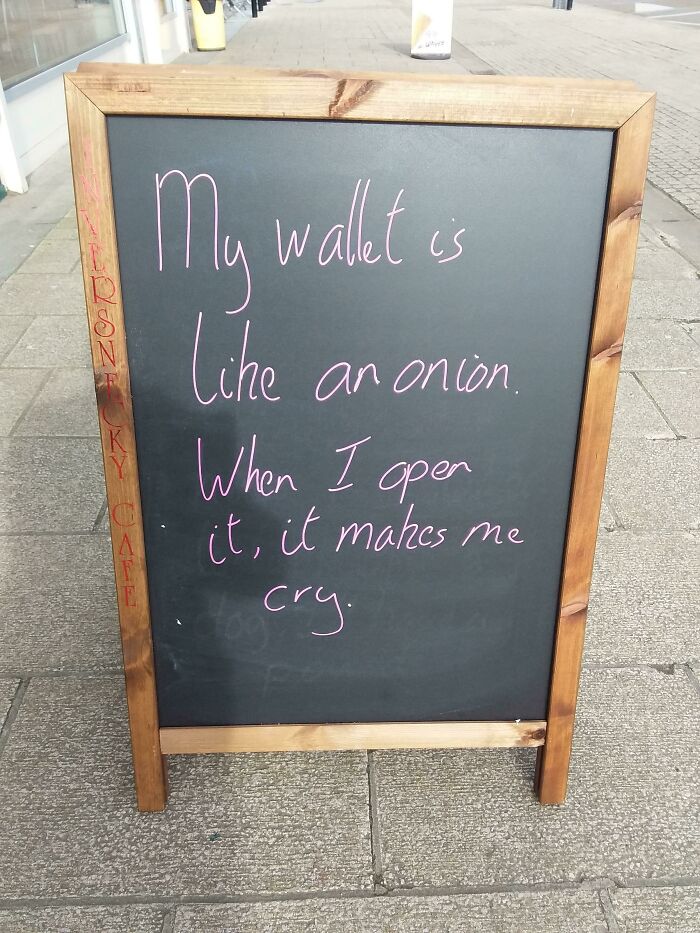 My wallet is
like an onion.
When I open
it, it makes me
cry.
INVERSNECKY CAFE
dog